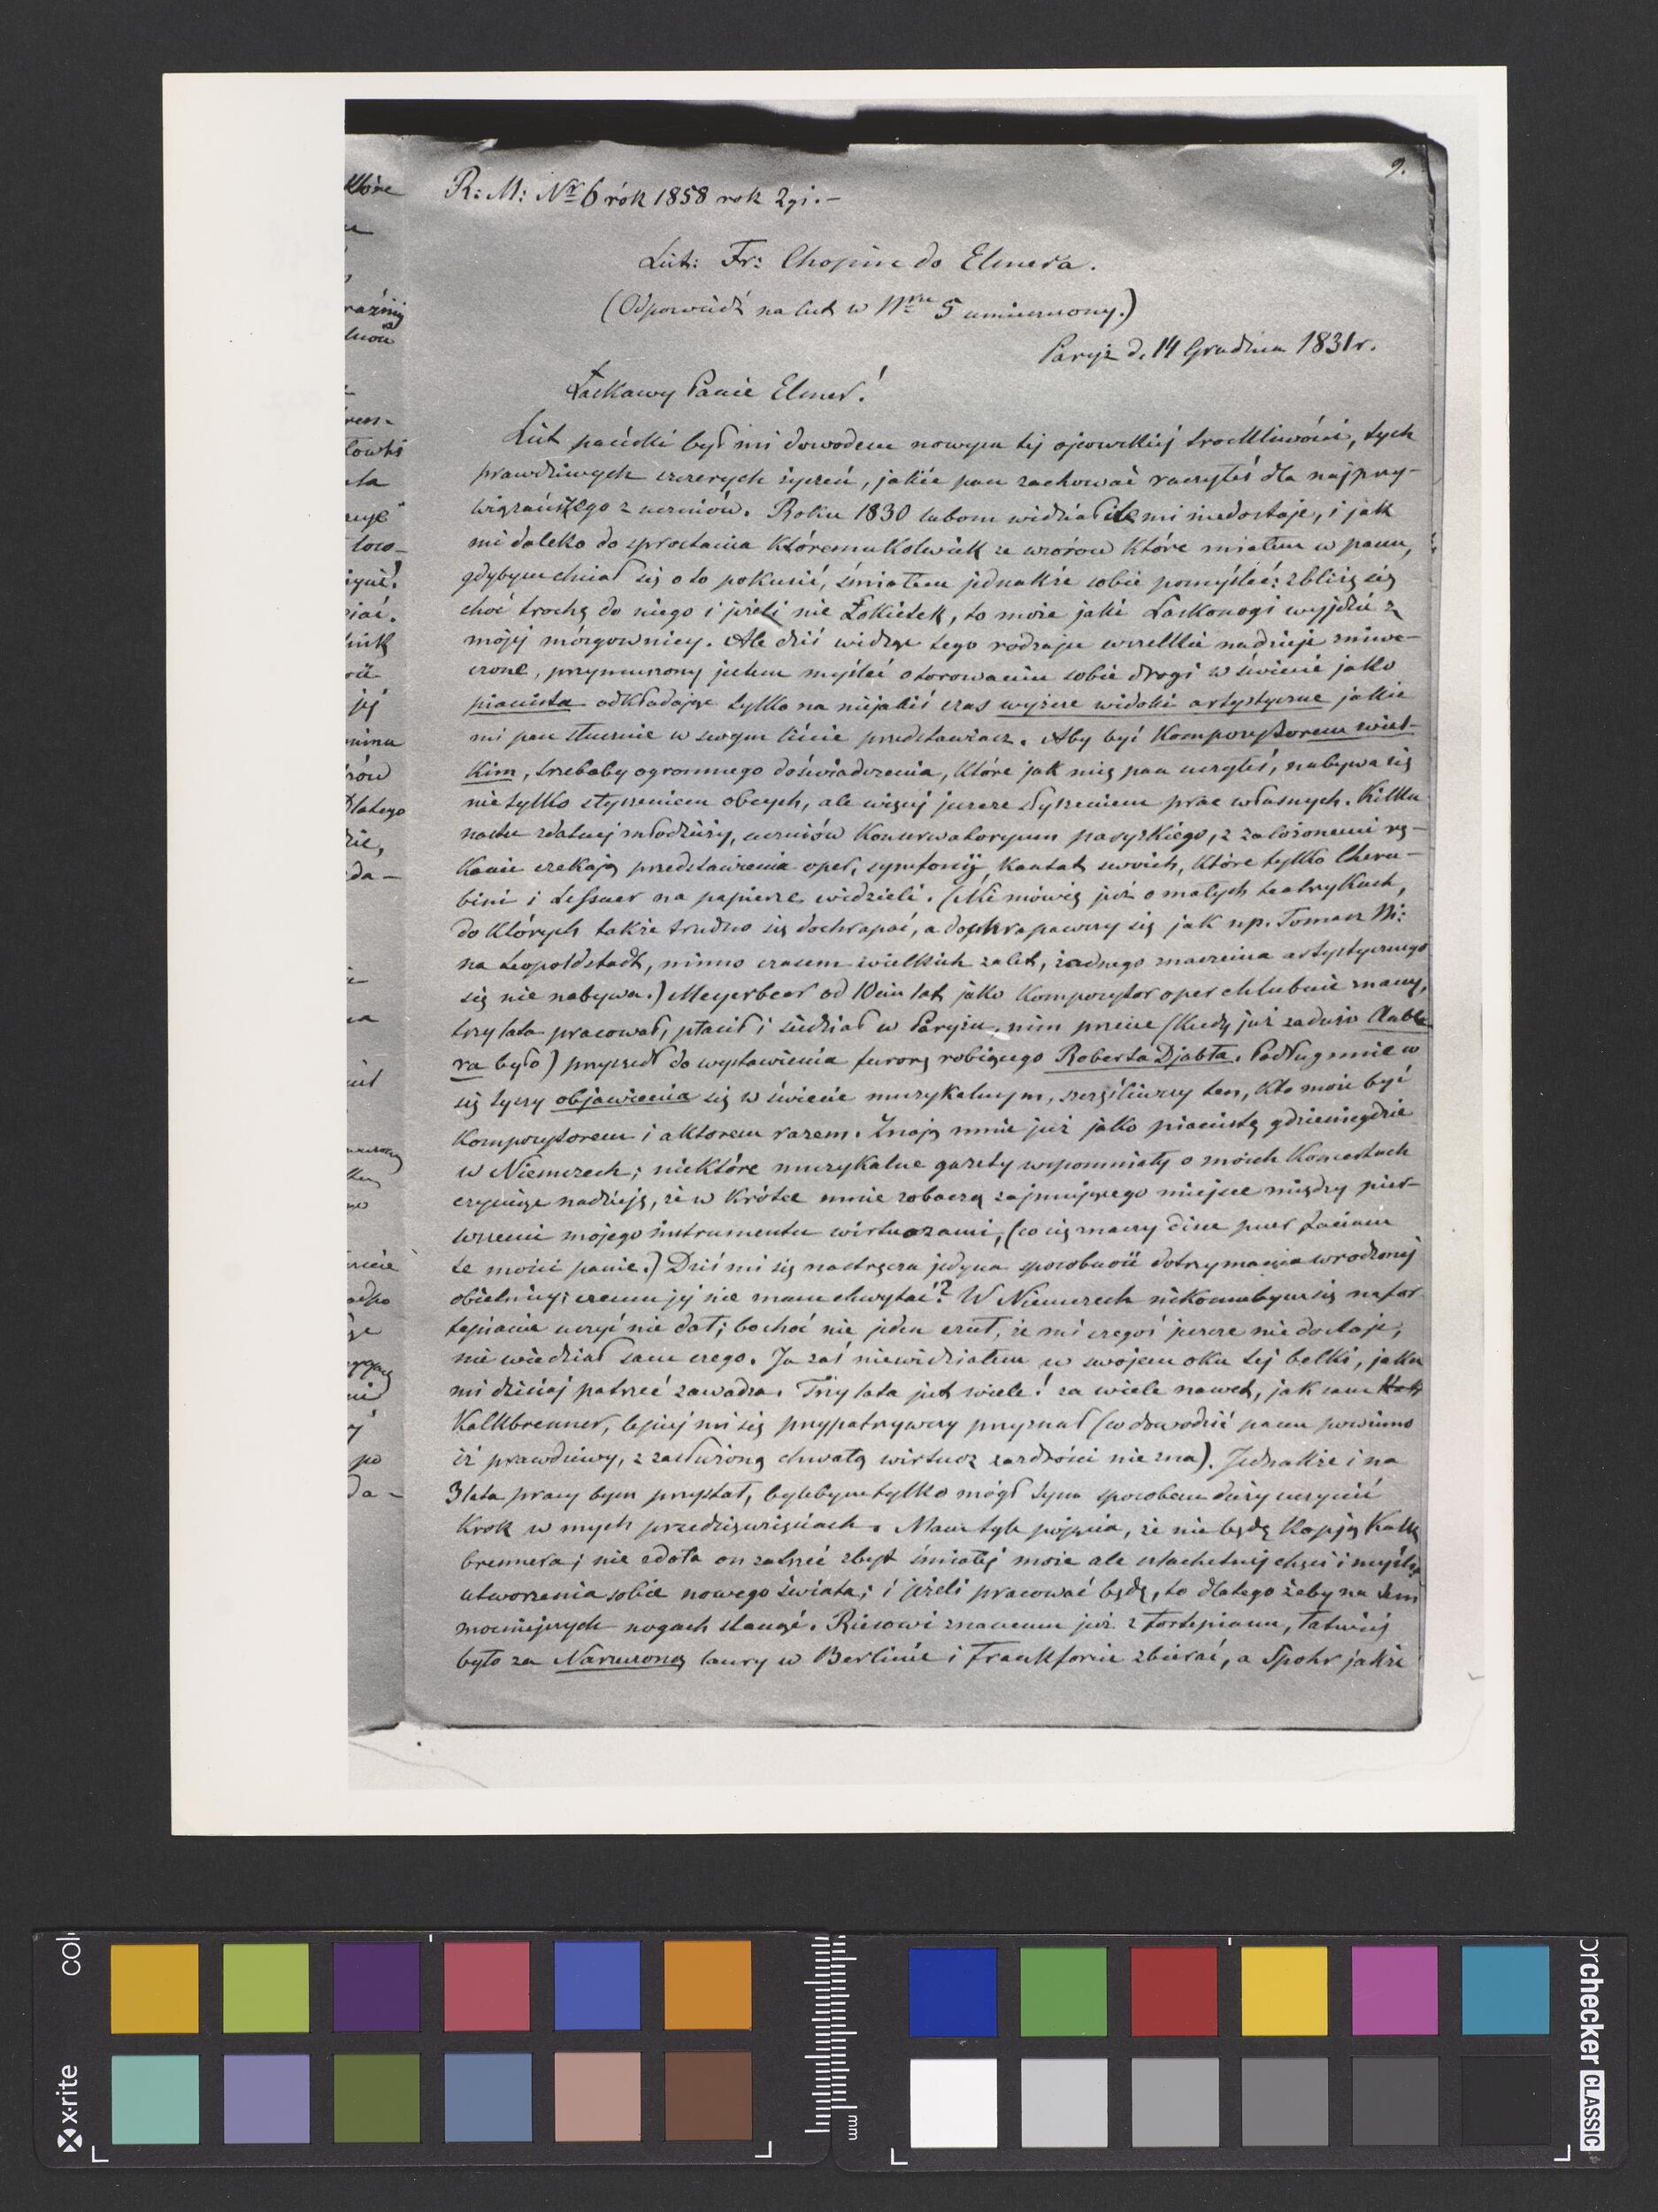 9.
R: M: Nr 6 rók 1858 rok 2gi.–
List: Fr: Chopin do Elsnera.
(Odpowiedź na list w Nrze 5 umieszczony.)
Paryż d. 14 Grudnia 1831 r.
Łaskawy Panie Elsner!
List pański był mi dowodem nowym tej ojcowskiej troskliwości, tych
prawdziwych szczerych życzeń, jakie pan zachować raczyłeś dla najprzy-
wiązańszego z uczniów. Roku 1830 lubom widział ile mi niedostaje, i jak
mi daleko do sprostania któremukolwiek ze wzorów które miałem w panu,
gdybym chciał się o to pokusić, śmiałem jednakże sobie pomyśleć: zbliżę się
choć trochę do niego i jeżeli nie Łokietek, to może jaki Laskonogi wyjdzie z
mojej mózgownicy. Ale dziś widząc tego rodzaju wszelkie nadzieje zniwe-
czone, przymuszony jestem myśleć o torowaniu sobie drogi w świecie jako
pianista odkładając tylko na niejakiś czas wyższe widoki artystyczne jakie
mi pan słusznie w swym liście przedstawiasz. Aby być kompozytorem wiel-
kim, trzebaby ogromnego doświadczenia, które jak mię pan uczyłeś, nabywa się
nie tylko słyszeniem obcych, ale więcej jeszcze słyszeniem prac własnych. Kilku
nastu zdatnej młodzieży, uczniów Konserwatoryum paryzkiego, z założonemi rę-
kami czekają przedstawienia oper, symfonij, kantat swoich, które tylko Cheru-
bini i Lessuer na papierze widzieli. (Nie mówię już o małych teatrzykach,
do których także trudno się dochrapać, a dochrapawszy się jak np. Tomasz Ni:
na Leopoldstadt, mimo czasem wielkich zalet, żadnego znaczenia artystycznego
się nie nabywa.) Meyerbeer od 10ciu lat jako kompozytor oper chlubnie znany,
trzy lata pracował, płacił i siedział w Paryżu, nim przecie (kiedy już zadużo Aube
ra było) przyszedł do wystawienia furorę robiącego Roberta Djabła. Podług mnie co
się tyczy objawienia się w świecie muzykalnym, szczęśliwszy ten, kto może być
kompozytorem i aktorem razem. Znają mnie już jako pianistę gdzieniegdzie
w Niemczech; niektóre muzykalne gazety wspomniały o moich Koncertach
czyniąc nadzieję, że w krótce mnie zobaczą zajmującego miejsce między pier-
wszemi mojego instrumentu wirtuozami, (co się znaczy disce puer faciam
te mości panie.) Dziś mi się nastręcza jedyna sposobność dotrzymania wrodzonej
obietnicy; czemu jej nie mam chwytać? W Niemczech nikomubym się na for-
tepianie uczyć nie dał; bo choć nie jeden czuł, że mi czegoś jeszcze nie dostaje,
nie wiedział sam czego. Ja zaś niewidziałem w swojem oku tej belki, jaka
mi dzisiaj patrzeć zawadza. Trzy lata jest wiele! za wiele nawet, jak sam
Kalkbrenner, lepiej mi się przypatrzywszy przyznał (co dowodzić panu powinno
iż prawdziwy, z zasłużoną chwałą wirtuoz zazdrości nie zna). Jednakże i na
3 lata pracy bym przystał, bylebym tylko mógł tym sposobem duży uczynić
krok w mych przedsięwzięciach. Mam tyle pojęcia, że nie będę kopją Kalk
brennera; nie zdoła on zatrzeć zbyt śmiałej może ale szlachetnej chęci i myśli
utworzenia sobie nowego świata; i jeżeli pracować będę, to dlatego żeby na tem
mocniejszych nogach stanąć. Riesowi znanemu już z fortepianu, łatwiej
było za Narzeczoną laury w Berlinie i Frankforcie zbierać, a Spohr jakże